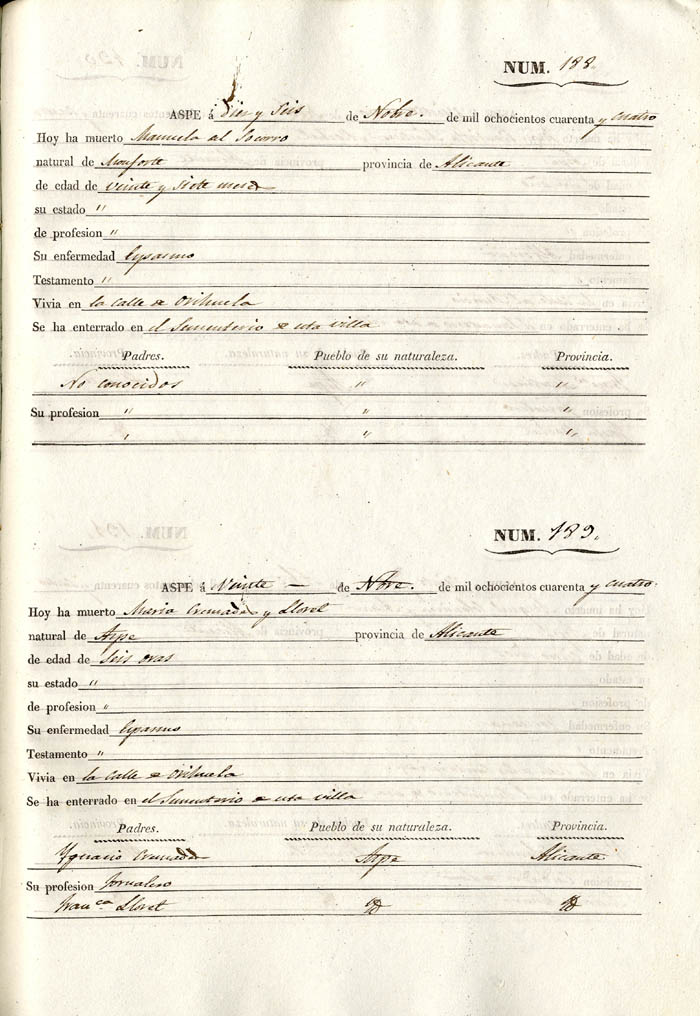 NUM. 188.
ASPE á Dies y Seis de Nobre. de mil ochocientos cuarenta y cuatro
Hoy ha muerto Manuela al Socorro
natural de Monforte provincia de Alicante
de edad de veinte y siete meses
su estado "
de profesion "
Su enfermedad Espasmo
Testamento "
Vivia en la calle de Orihuela
Se ha enterrado en el Sumenterio de esta villa
Padres. Pueblo de su naturaleza. Provincia.
No conocidos " "
Su profesion " " "
" " "
NUM. 189.
ASPE á Veinte — de Nbre. de mil ochocientos cuarenta y cuatro
Hoy ha muerto Maria Cremades y Lloret
natural de Aspe provincia de Alicante
de edad de Seis oras
su estado "
de profesion "
Su enfermedad Espasmo
Testamento "
Vivia en la calle de Orihuela
Se ha enterrado en el Sumenterio de esta villa
Padres. Pueblo de su naturaleza. Provincia.
Ygnacio Cremades Aspe Alicante
Su profesion Jornalero
Franca Lloret